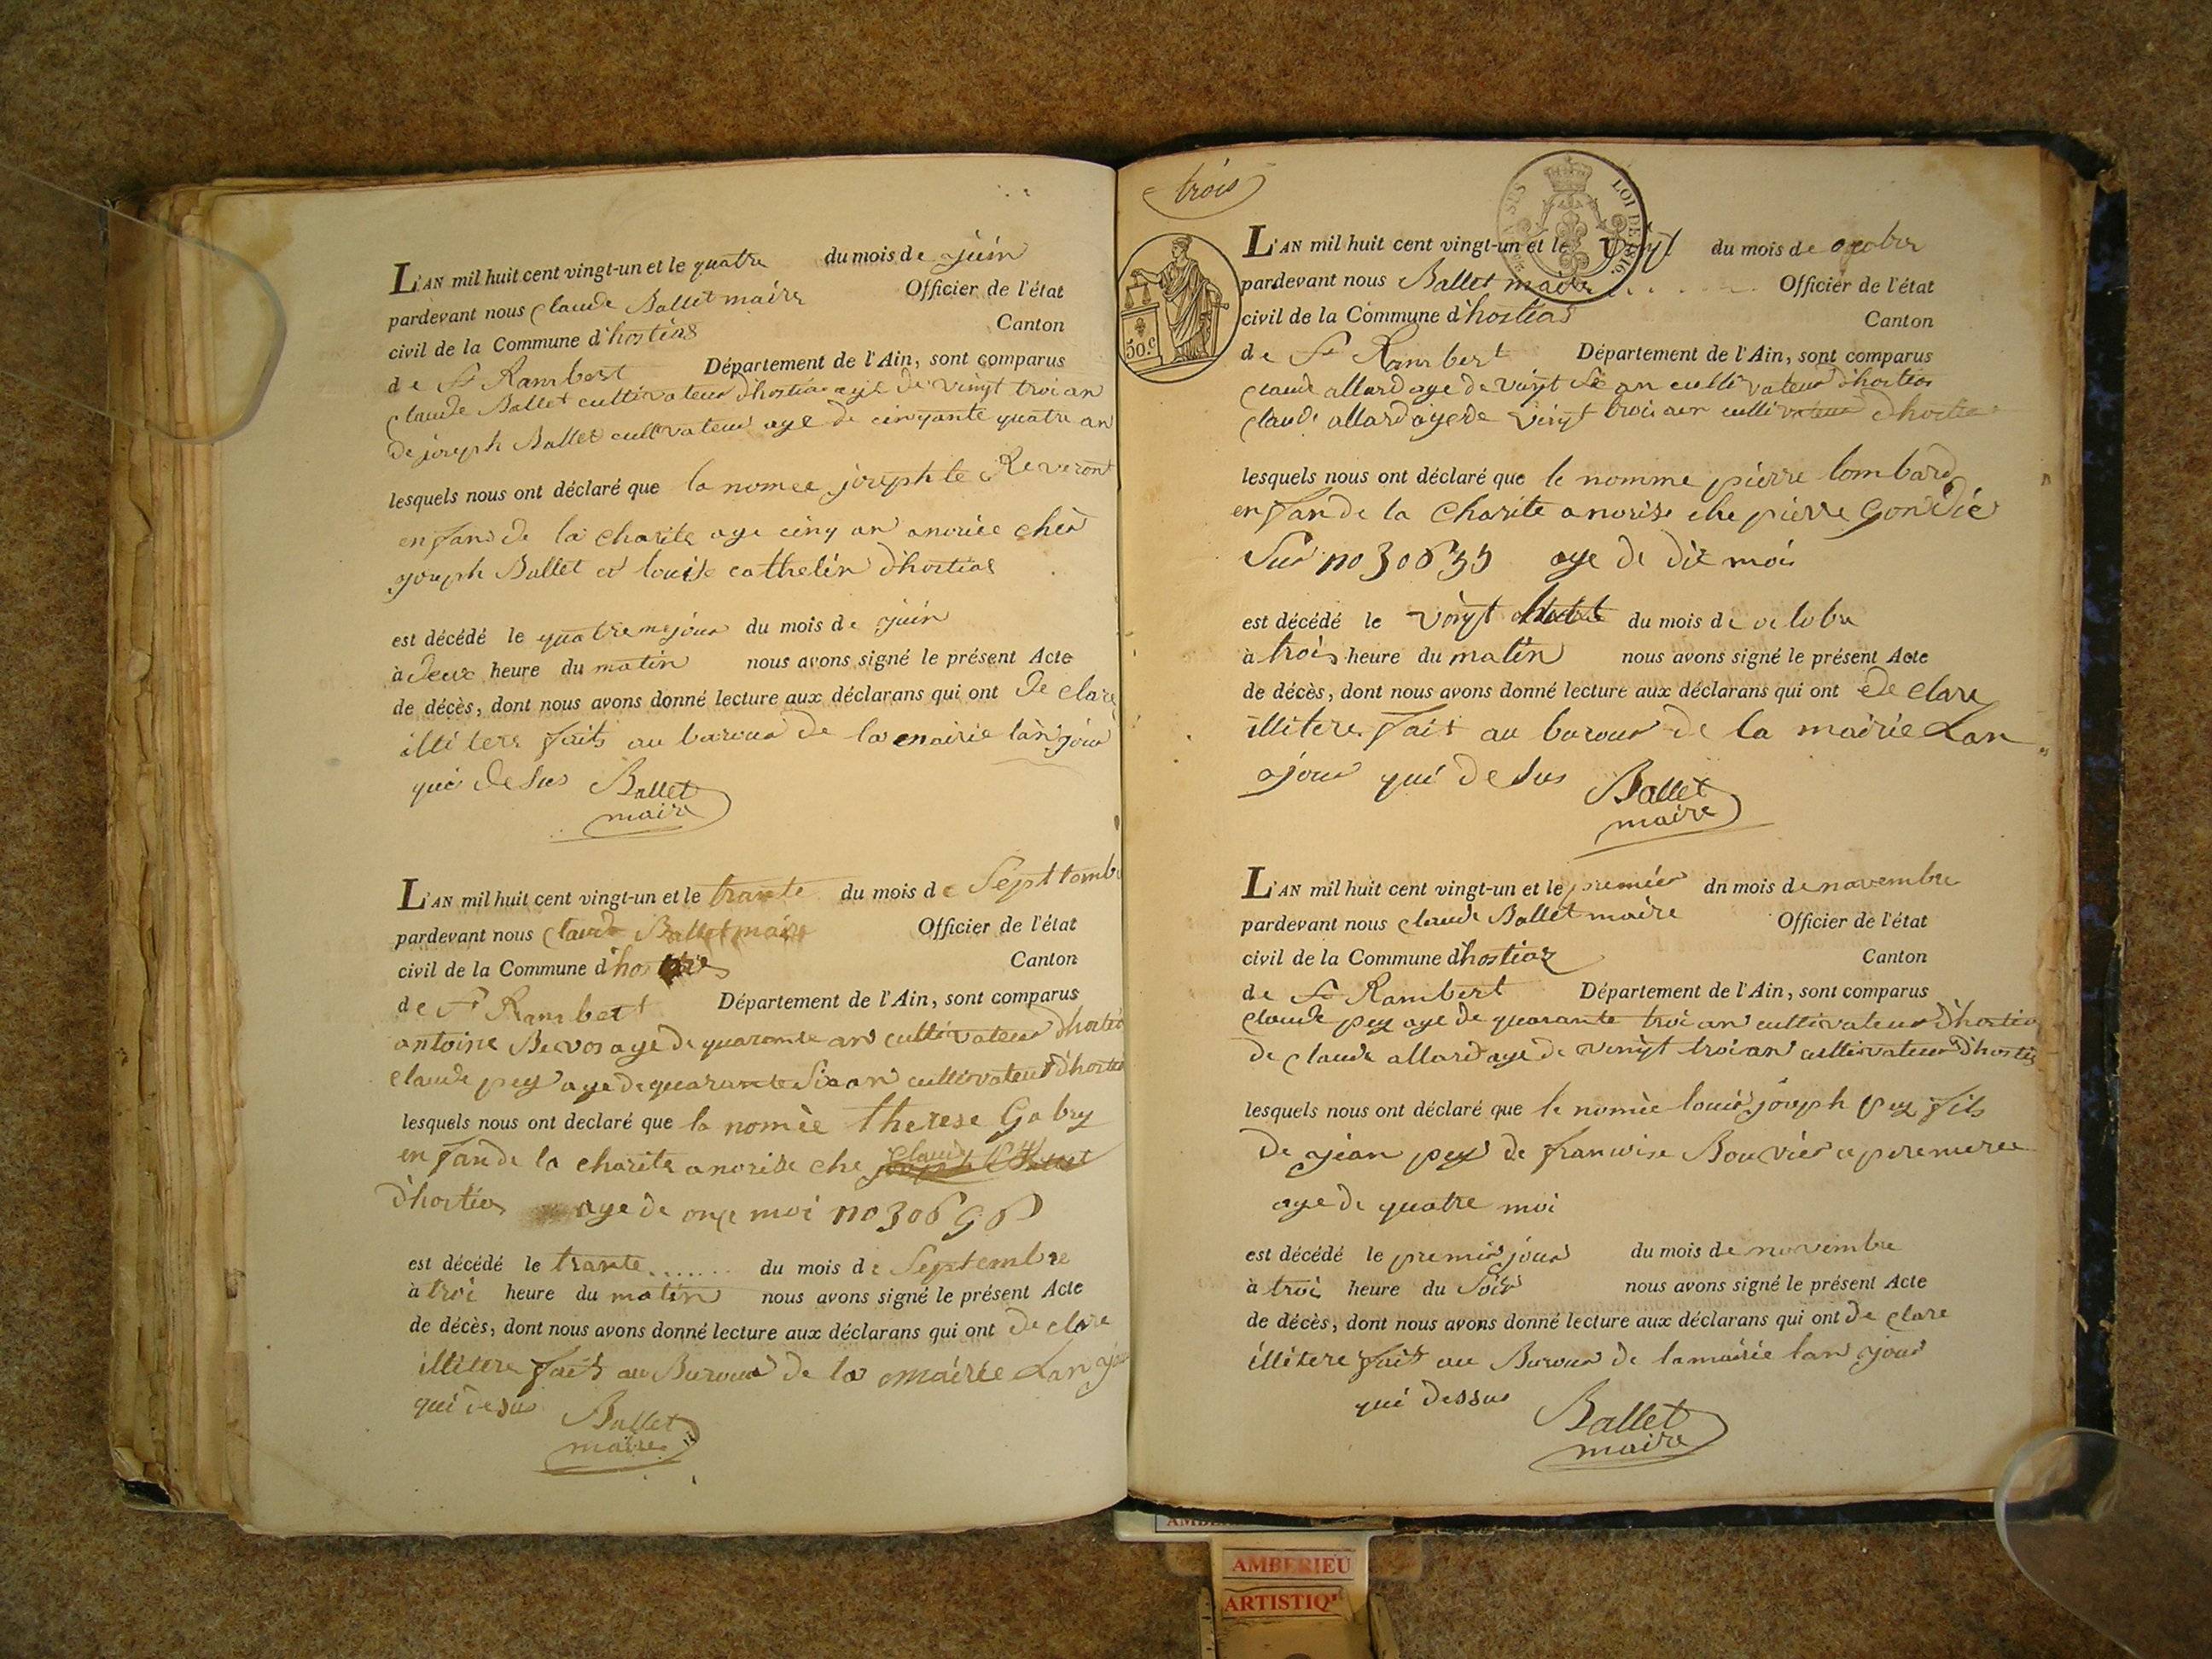 L'AN mil huit cent vingt-un et le quatre du mois de juin
pardevant nous claude Ballet maire Officier de l'état
civil de la Commune d'hostias Canton
de St Rambert Département de l'Ain, sont comparus
claude Ballet cultivateur d'hostias age de vingt troi an
de joseph Ballet cultivateur age de cinqante quatre an
lesquels nous ont déclaré que la nomee josephte Reveront
enfand de la charite age cinq an anorice chès
joseph Ballet et louise cathelin d'hostias
est décédé le quatreme jour du mois de juin
à deux heure du matin nous avons signé le présent Acte
de décès, dont nous avons donné lecture aux déclarans qui ont de clare
illitere faits au buroud de la mairie lan jour
qui desus Ballet
maire
L'AN mil huit cent vingt-un et le trante du mois de Septtembr
pardevant nous claude Ballet maire Officier de l'état
civil de la Commune d'hostias Canton
de St Rambert Département de l'Ain, sont comparus
antoine age de quarante an cultivateur d'hostias
claude pey age de quarante Six an cultivateur d'hostia
lesquels nous ont declaré que la nomèe therese Gabry
enfan de la charite anorise che claude
d'hostias age de onze moi no 30696
est décédé le trante....... du mois de Septembre
à troi heure du matin nous avons signé le présent Acte
de décès, dont nous avons donné lecture aux déclarans qui ont de clare
illitere faits au Buroud de la mairie Lan
qui desus Ballet
maire
trois
LOI DE 1816.
50.c
L'AN mil huit cent vingt-un et le Vingt du mois de octobre
pardevant nous Ballet maire Officier de l'état
civil de la Commune d'hostias Canton
de St Rambert Département de l'Ain, sont comparus
claude allard age de vingt Sis an cultivateur d'hostias
claude allard age de vingt trois an cultivateur d'hostias
lesquels nous ont déclaré que le nomme pierre lombard
enfan de la Charite anorise che pierre Gondié
Sur no 30635 age de dix mois
est décédé le vingt du mois de octobre
à trois heure du matin nous avons signé le présent Acte
de décès, dont nous avons donné lecture aux déclarans qui ont de clare
illitere fait au buroud de la mairie Lan
ajour qui desus Ballet
maire
L'AN mil huit cent vingt-un et le premier dn mois de novembre
pardevant nous claude Ballet maire Officier de l'état
civil de la Commune d'hostias Canton
de St Rambert Département de l'Ain, sont comparus
claude pey age de quarante troi an cultivateur d'hostia
de claude allard age de vingt troi an cultivateur d'hostia
lesquels nous ont déclaré que le nomèe louis joseph pey fils
de jean pey de franwise Bouvier
age de quatre moi
est décédé le premier jour du mois de novembre
à troi heure du Soir nous avons signé le présent Acte
de décès, dont nous avons donné lecture aux déclarans qui ont de clare
illitere fait au Buroud de lamairie lan jour
qui dessus Ballet
maire
AMBERIEU
ARTISTIQ